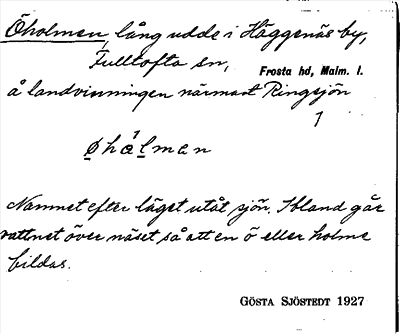 Öholmen, lång udde i Häggenäs by,
Fulltofta sn,
Frosta hd, Malm. l.
å landvinningen närmast Ringsjön
øhålmen
Namnet efter läget utåt sjön. Ibland går
vattnet över näset så att en ö eller holme
bildas.
GÖSTA SJÖSTEDT 1927